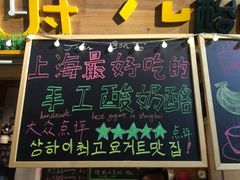 上海最好吃的
手工酸奶酪
handmade best yogurt in shanghai
大众点评 ★★★★★ 点评
상하이최고 요거트맛집!